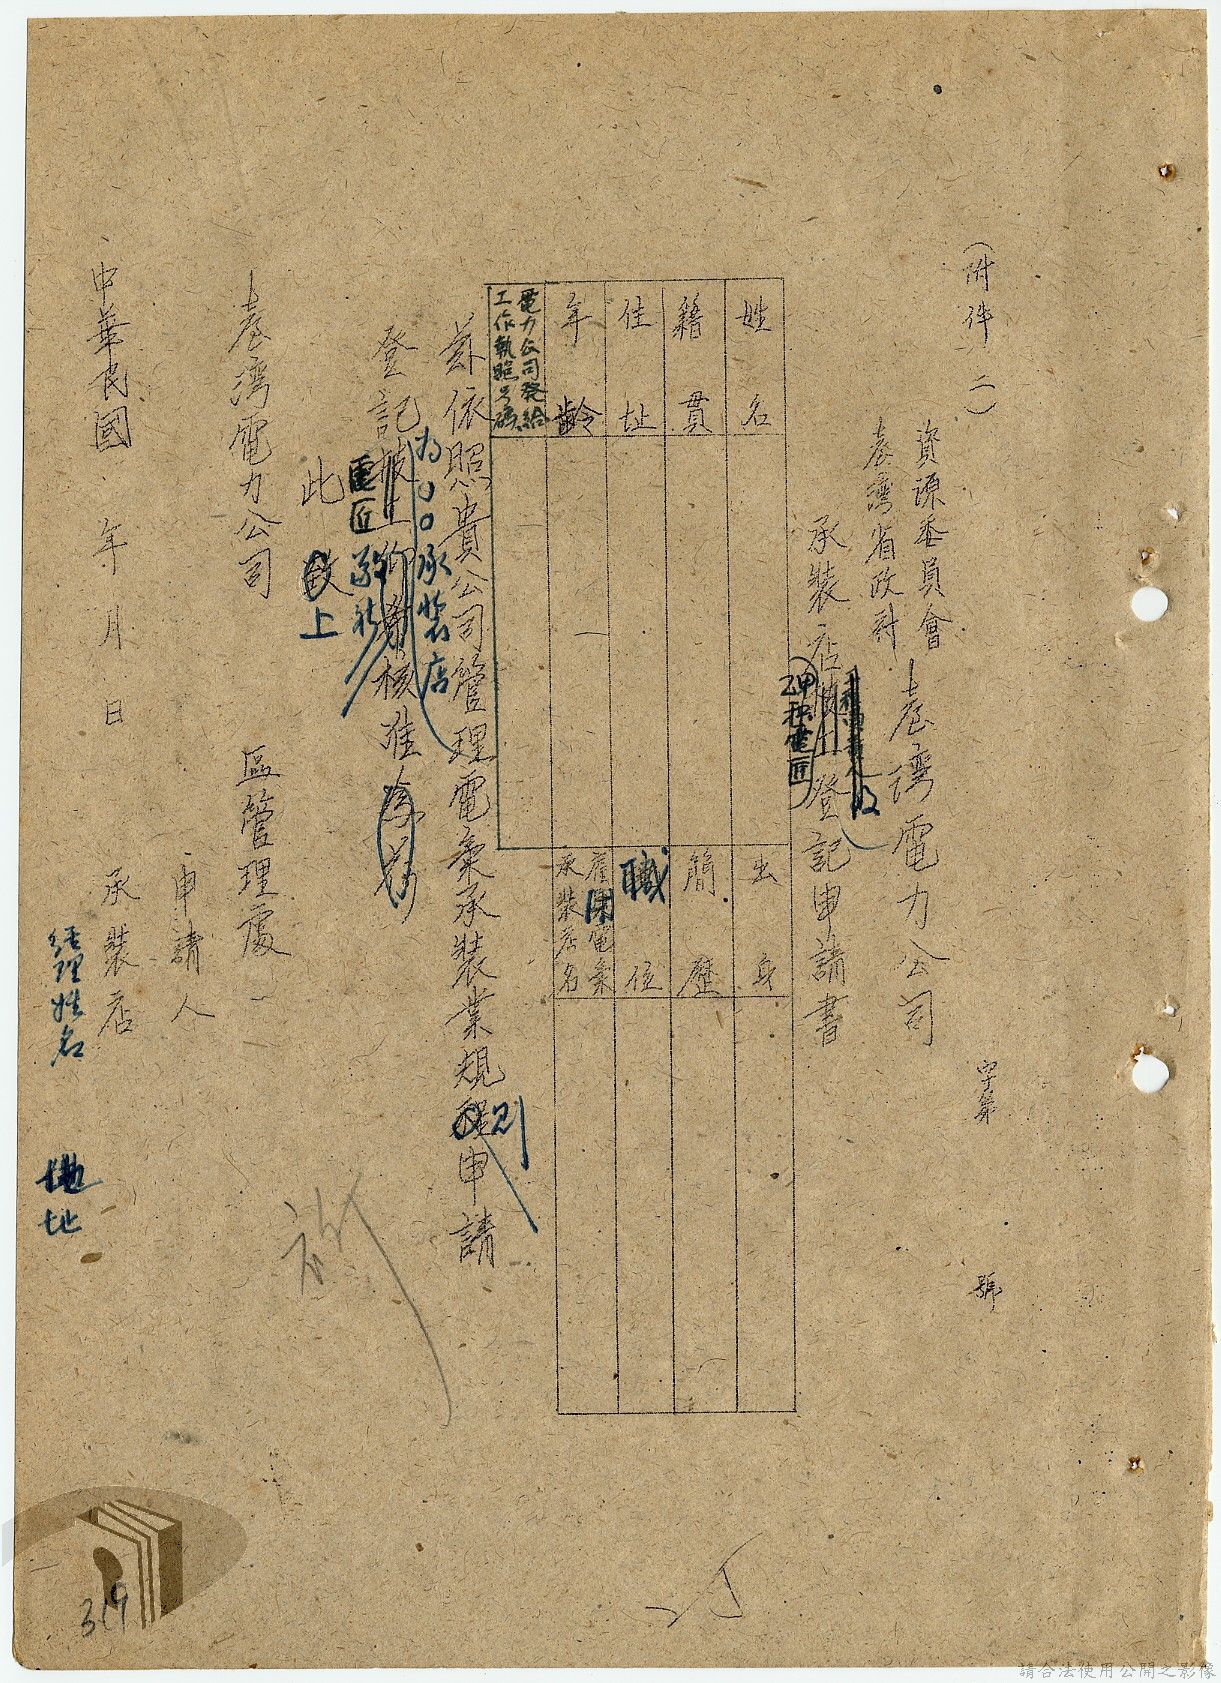 (附件二)
字第
號
資源委員會
臺灣省政府
臺灣電力公司
承裝店技工登記申請書
甲乙種電匠
姓名
籍貫
住址
年齡
電力公司發給
工作執照号碼
出身
簡歷
職位
電氣
承裝店名
茲依照貴公司管理電氣承裝業規程申請
則
為〇〇承裝店
登記技工
核准
電匠
此致
上
臺灣電力公司
區管理處
申請人
承裝店
經理姓名
地址
中華民國 年 月 日
319
請合法使用公開之影像